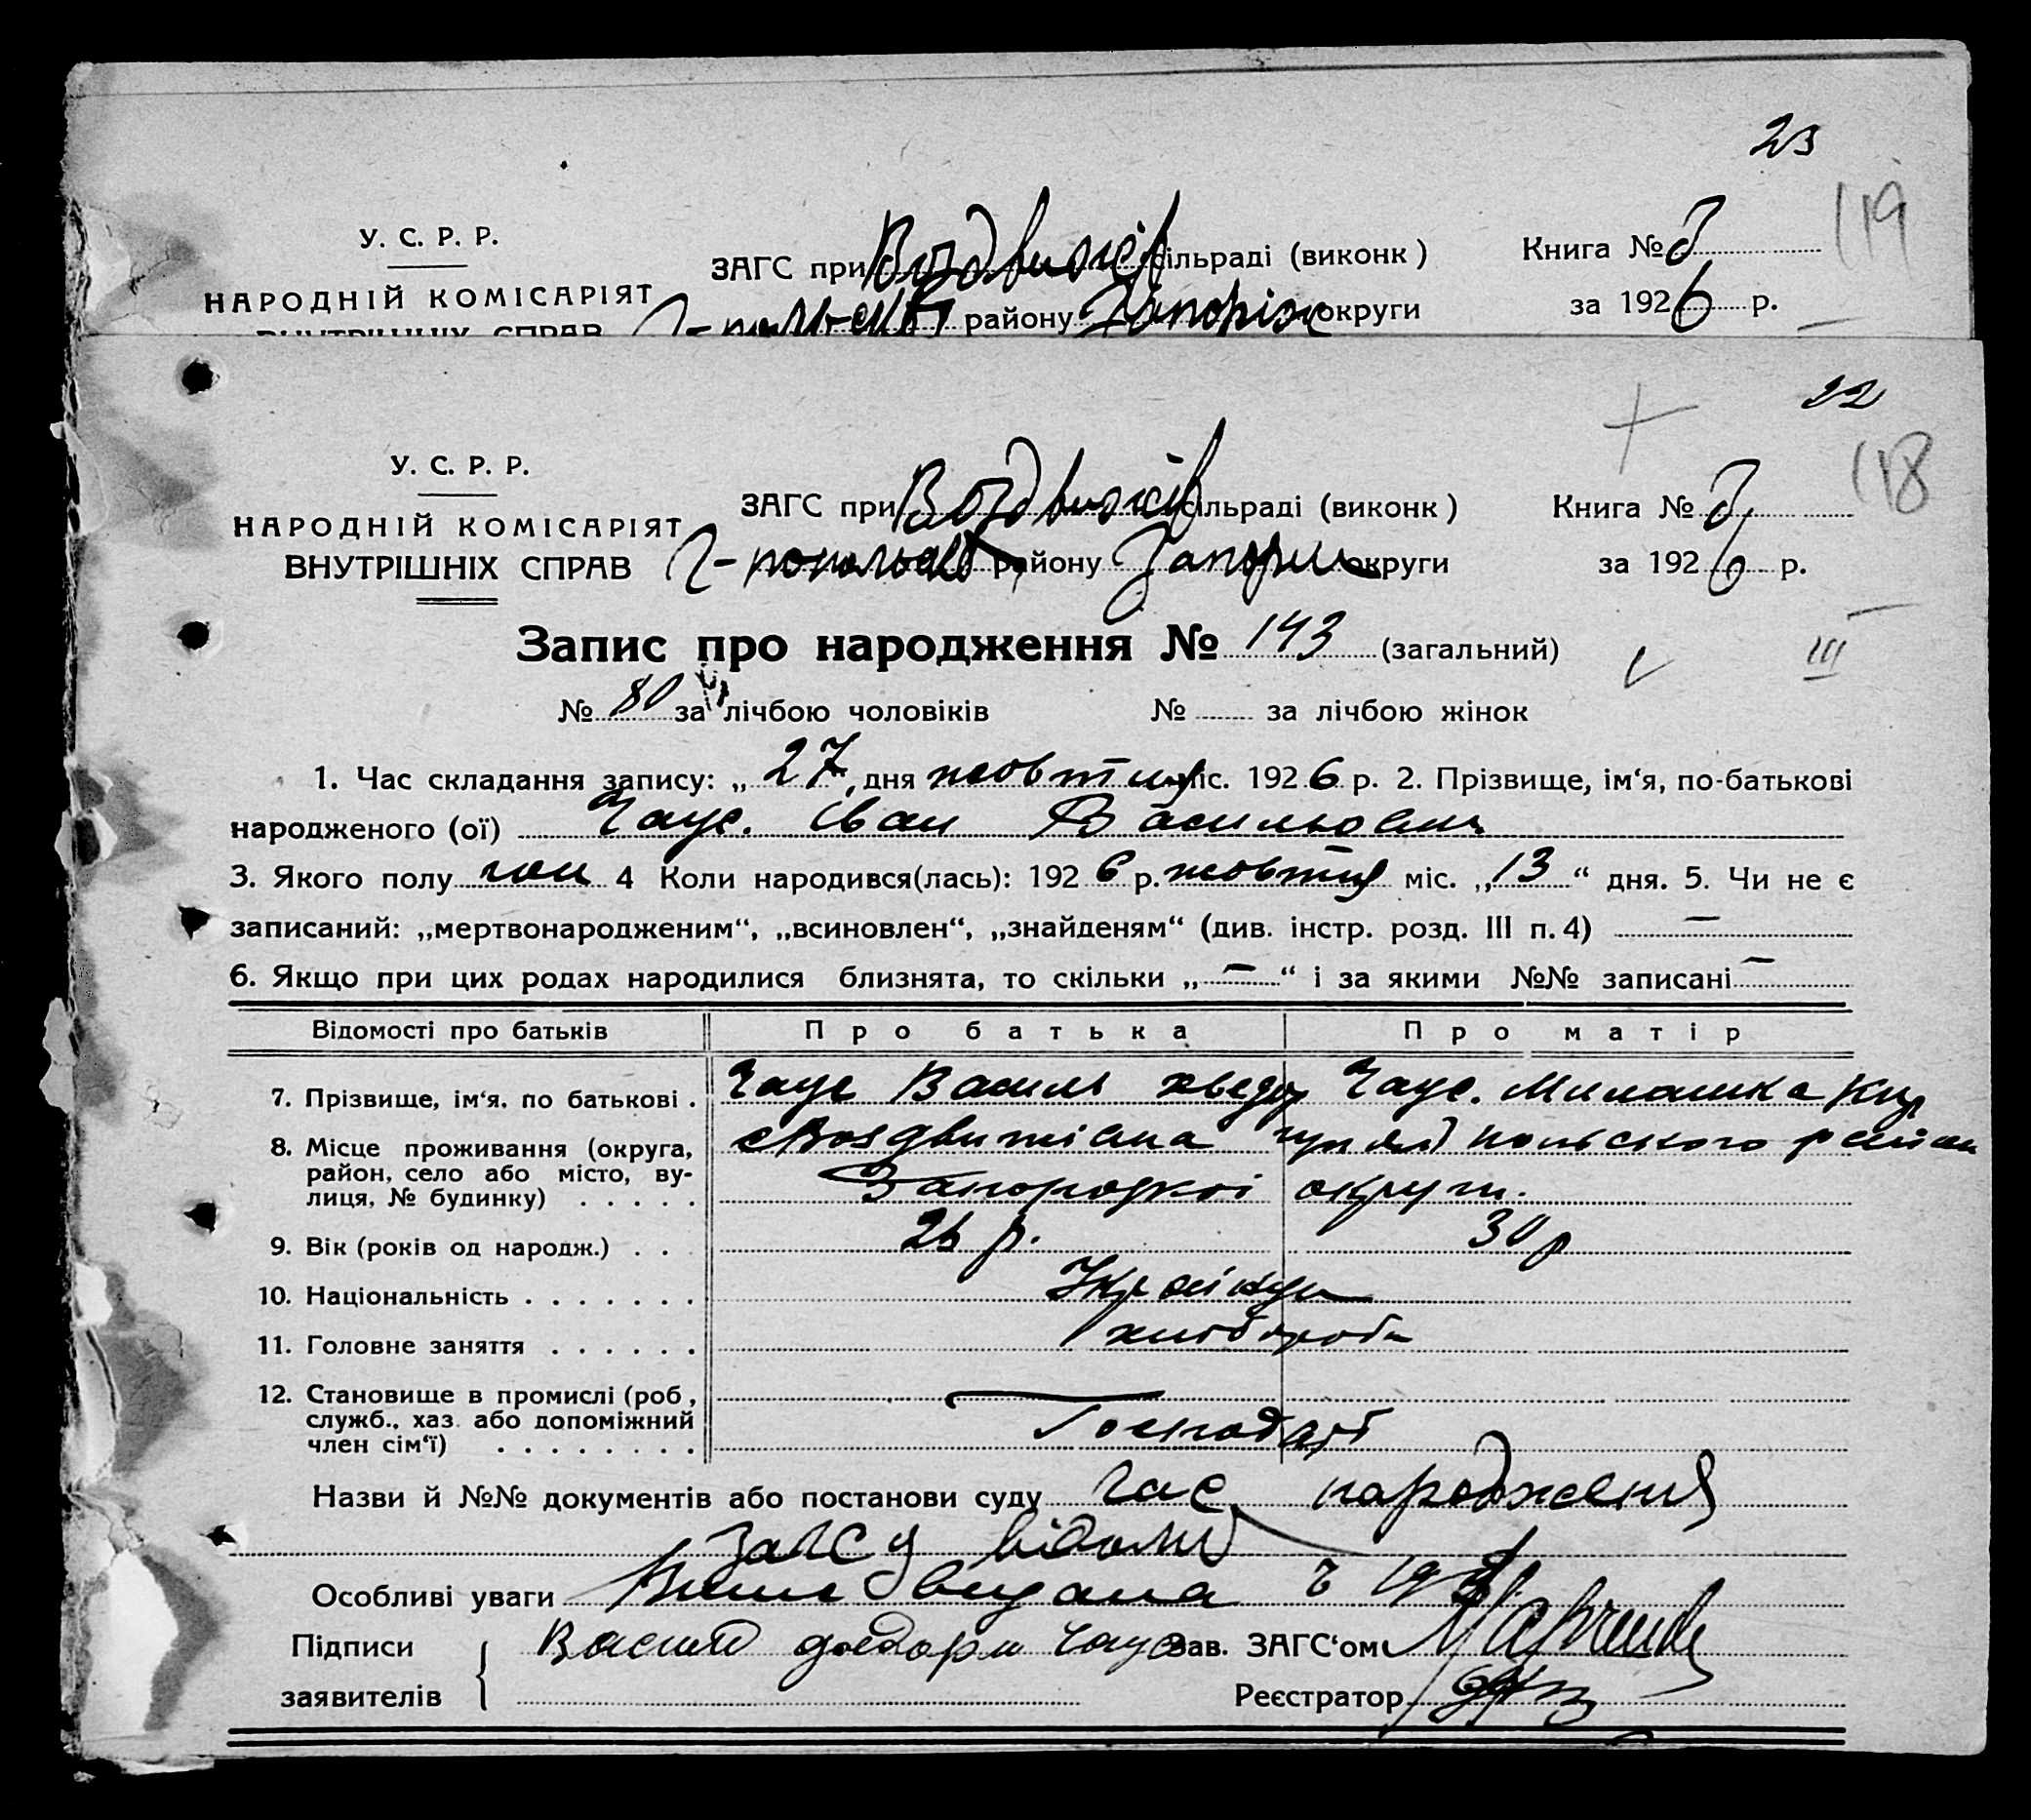 23
119
У. С. Р. Р.
ЗАГС при Воздвижів сільраді (виконк)
Книга №
НАРОДНІЙ КОМІСАРІЯТ
району Запоріж округи
за 1926 р.
ВНУТРІШНІХ СПРАВ
22
118
У. С. Р. Р.
ЗАГС при Воздвижів сільраді (виконк)
Книга №
НАРОДНІЙ КОМІСАРІЯТ
ВНУТРІШНІХ СПРАВ
Г-польськ району Запоріж округи
за 1926 р.
Запис про народження № 143 (загальний)
III
№ 80 за лічбою чоловіків № за лічбою жінок
1. Час складання запису: „27 дня жовтня міс. 1926 р. 2. Прізвище, ім‘я, по-батькові
народженого (ої) Чаус. Іван Васильович
3. Якого полу чол 4 Коли народився(лась): 1926 р. жовтня міс. „13“ дня. 5. Чи не є
записаний: „мертвонародженим“, „всиновлен“, „знайденям“ (див. інстр. розд. III п. 4) —
6. Якщо при цих родах народилися близнята, то скільки „—“ і за якими №№ записані —
Відомості про батьків
Про батька
Про матір
7. Прізвище, ім‘я. по батькові .
Чаус Василь Хведор
Чаус. Милашка Кир
8. Місце проживання (округа,
район, село або місто, ву-
лиця, № будинку) . . . . .
гуляйпольського район
Запорозкої округи.
9. Вік (років од народж.) . . .
26 р.
30 р
10. Національність . . . . . . .
Українці
11. Головне заняття . . . . . .
хлібороби
12. Становище в промислі (роб,
служб., хаз. або допоміжний
член сім‘ї) . . . . . . . .
Господарі
Назви й №№ документів або постанови суду час народження
загсу відомо
Особливі уваги видана
Підписи
заявителів
Василь Чаус
Зав. ЗАГС‘ом
Реєстратор